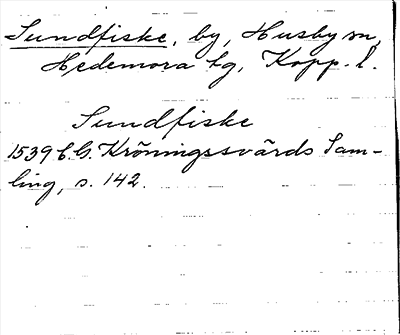 Sundfiske, by, Husby sn,
Hedemora tg, Kopp. l.
Sundfiske
1539 C.G. Kröningssvärds Sam-
ling, s. 142.